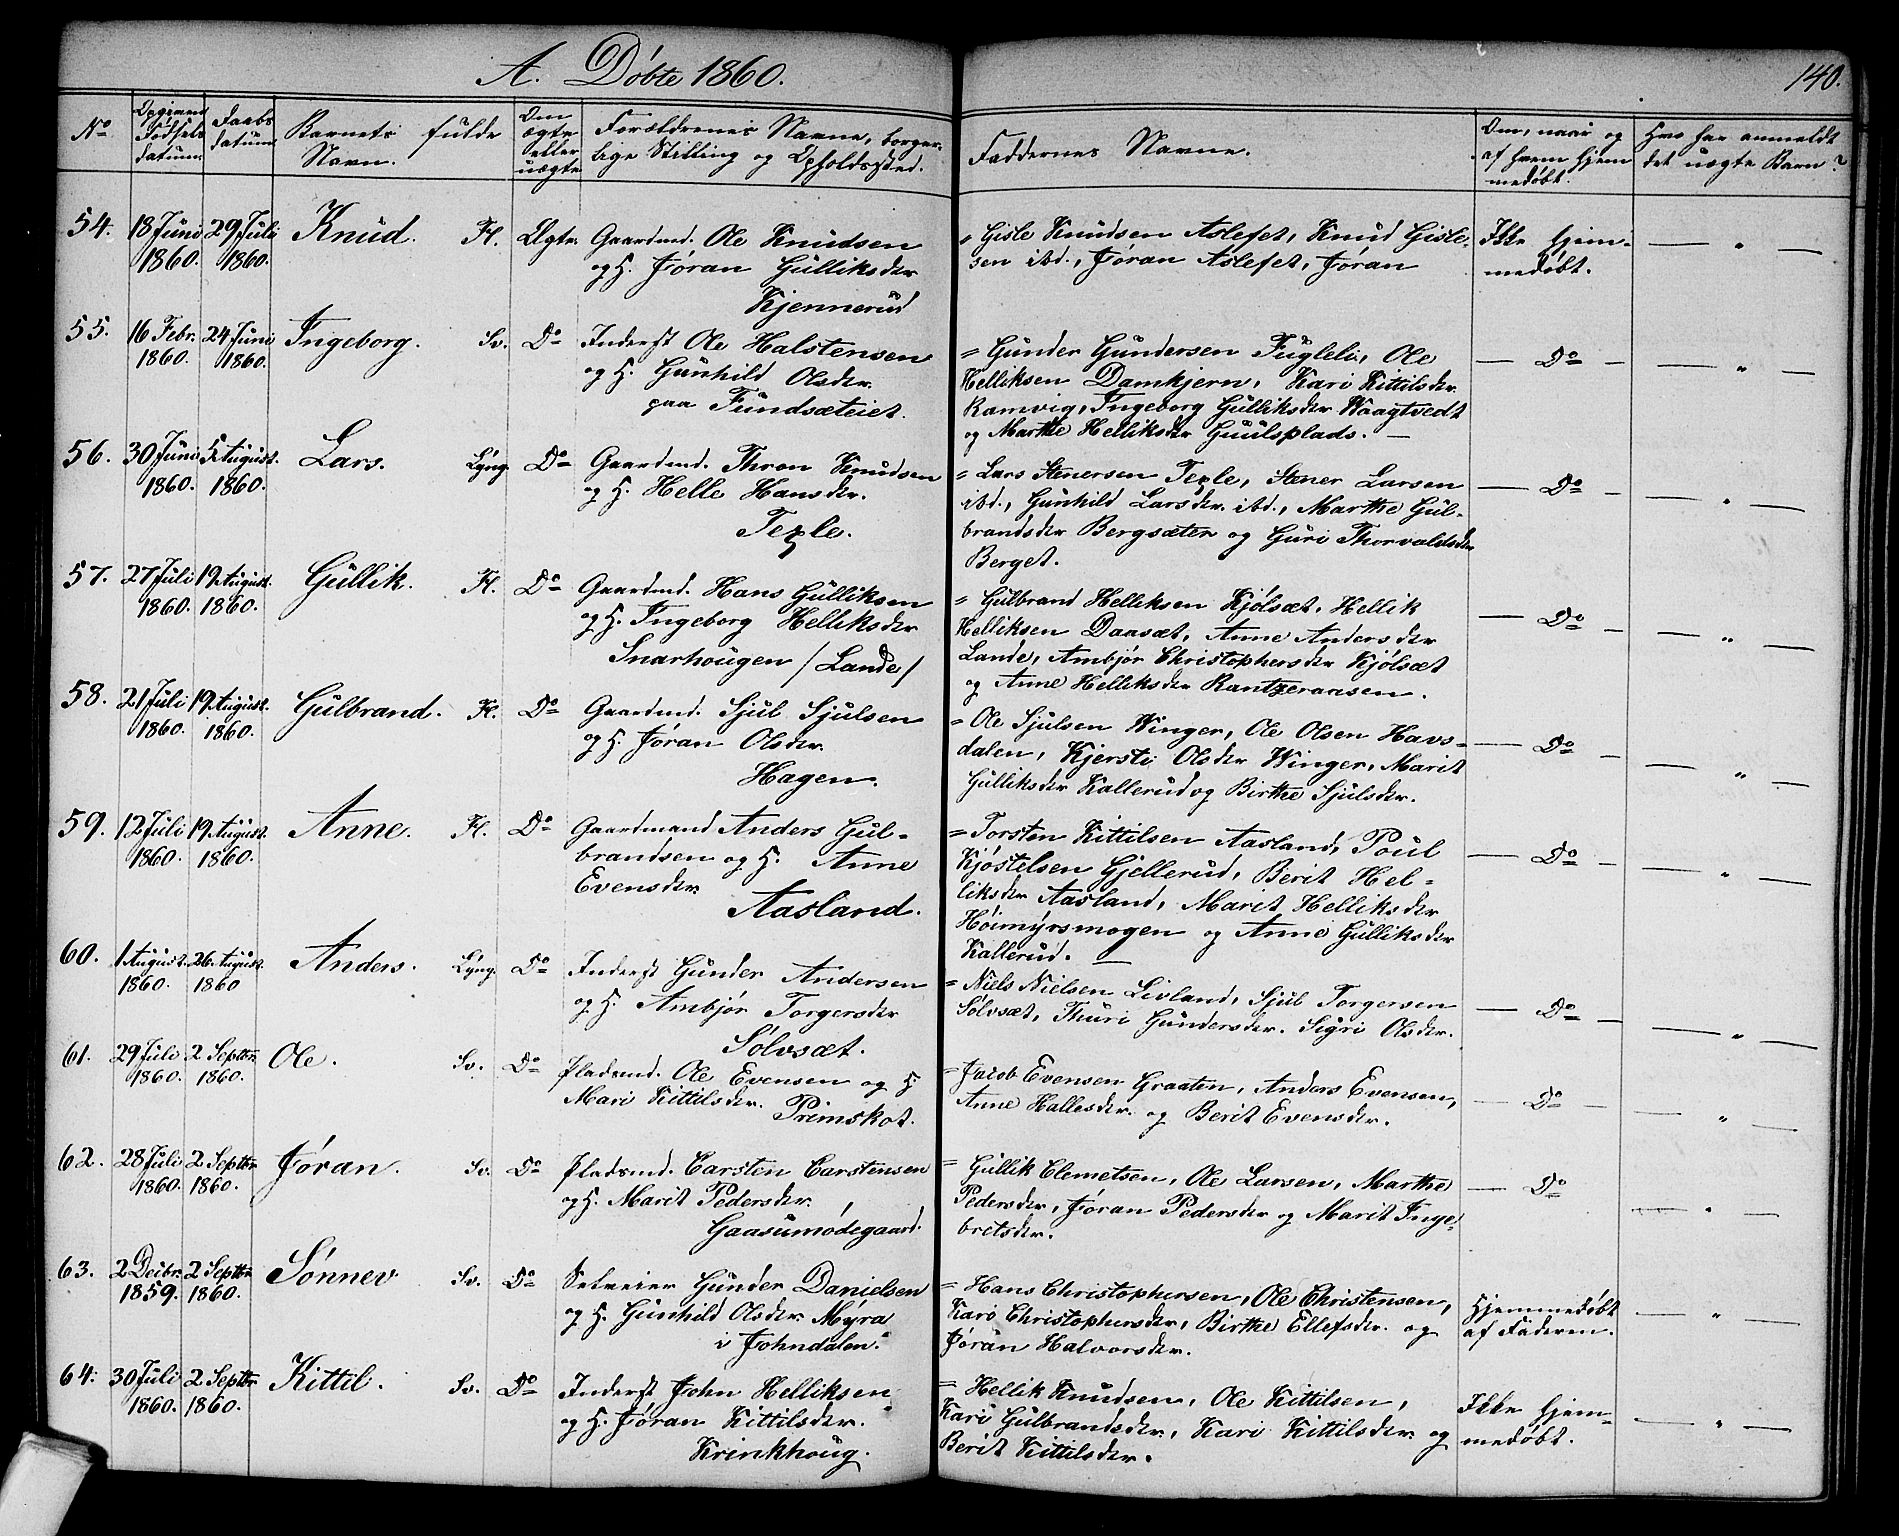 A. Döbte 1860.
140.
No
Opgivne Fødsels datum.
Daabs datum.
Barnets fulde Navn.
Om ægte eller uægte
Forældrenes Navne, borger-
lige Stilling og Opholdssted.
Faddernes Navne.
Om, naar og af hvem hjem medøbt.
Hvo har anmeldt det uægte Barn?
54. 18 Juni 1860. 29 Juli 1860. Knud. Fl. Ægte.
Gaardmd. Ole Knudsen
og H. Jøran Gulliksdr
Kjennerud
" Gisle Knudsen Aslefet, Knud Gisle-
sen ibd., Jøran Aslefet, Jøran
Ikke hjem-
medøbt.
— " —
55. 16 Febr. 1860. 24 Juni 1860. Ingeborg. Sv. Do
Inderst Ole Halstensen
og H. Gunhild Olsdr.
paa Fundsæteiet.
= Gunder Gundersen Fugleli, Ole
Helliksen Damkjern, Kari Kittilsdr.
Ramvig, Ingeborg Gulliksdr Waagtvedt
og Marthe Helliksdr Guulsplads. —
— Do —
— " —
56. 30 Juni 1860. 5 August. 1860. Lars. Lyng. Do
Gaardmd. Thron Knudsen
og H. Helle Hansdr.
Texle.
= Lars Stenersen Texle, Stener Larsen
ibd., Gunhild Larsdr. ibd., Marthe Gul-
brandsdr Bergsæter og Guri Thorvaldsdr
Berget.
— Do —
— " —
57. 27 Juli 1860. 19 August. 1860. Gullik. Fl. Do
Gaardmd. Hans Gulliksen
og H. Ingeborg Helliksdr
Snarhougen / Lande /
= Gulbrand Helliksen Kjölsæt, Hellik
Helliksen Daasæt, Anne Andersdr
Lande, Ambjør Christophersdr Kjölsæt
og Anne Helliksdr Rantzeraasen.
— Do —
— " —
58. 21 Juli 1860. 19 August. 1860. Gulbrand. Fl. Do
Gaardmd. Sjul Sjulsen
og H. Jøran Olsdr.
Hagen.
= Ole Sjulsen Winger, Ole Olsen Havs-
dalen, Kjersti Olsdr Winger, Marit
Gulliksdr Kallerud og Birthe Sjulsdr.
— Do —
— " —
59. 12 Juli 1860. 19 August. 1860. Anne. Fl. Do
Gaardmand Anders Gul-
brandsen og H. Anne
Evensdr
Aasland.
= Torsten Kittilsen Aasland, Poul
Kjöstelsen Gjellerud, Berit Hel-
liksdr Aasland, Marit Helliksdr
Höimyrsmogen og Anne Gulliksdr
Kallerud. —
— Do —
— " —
60. 1 August. 1860. 26 August. 1860 Anders. Lyng. Do
Inderst Gunder Andersen
og H. Ambjør Torgersdr
Sölvsæt.
= Niels Nielsen Livland, Sjul Torgersen
Sölvsæt, Thuri Gundersdr. Sigri Olsdr.
— Do —
— " —
61. 29 Juli 1860. 2 Septbr. 1860. Ole. Sv. Do
Pladsmd. Ole Evensen og H.
Mari Kittilsdr. Primskot.
= Jacob Evensen Graaten, Anders Evensen,
Anne Hallesdr. og Berit Evensdr.
— Do —
— " —
62. 28 Juli 1860. 2 Septbr. 1860. Jøran. Sv. Do
Pladsmd. Carsten Carstensen
og H. Marit Pedersdr.
Gaasumödegaard.
= Gullik Clemetsen, Ole Larsen, Marthe
Pedersdr, Jøran Pedersdr og Marit Inge-
bretsdr.
— Do
— " —
63. 2 Decbr. 1859. 2 Septbr. 1860. Sönnev Sv. Do
Selveier Gunder Danielsen
og H. Gunhild Olsdr. Myra
i Johndalen.
= Hans Christophersen, Ole Christensen,
Kari Christophersdr, Birthe Ellefsdr. og
Jöran Halvorsdr.
Hjemmedøbt
af Faderen.
— " —
64. 30 Juli 1860. 2 Septbr 1860. Kittil. Sv. Do
Inderst John Helliksen
og H. Jøran Kittilsdr.
Krinkhoug.
= Hellik Knudsen, Ole Kittilsen,
Kari Gulbrandsdr, Kari Kittilsdr og
Berit Kittilsdr.
Ikke hjem-
medøbt.
— " —